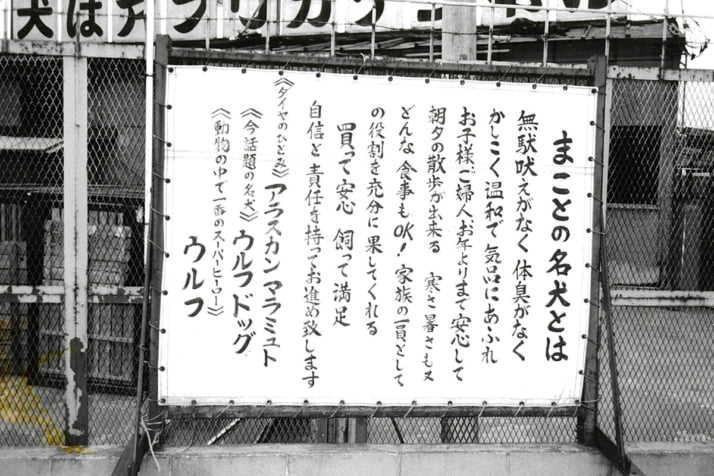 犬はアラ
まことの名犬とは
無駄吠えがなく 体臭がなく
かしこく 温和で 気品にあふれ
お子様ご婦人お年よりまで安心して
朝夕の散歩が出来る 寒さ暑さも又
どんな食事もOK! 家族の一員として
の役割を充分に果してくれる
買って安心 飼って満足
自信と責任を持ってお進め致します
《ダイヤのひとみ》アラスカンマラミュト
《今話題の名犬》ウルフドッグ
《動物の中で一番のスーパーヒーロー》
ウルフ